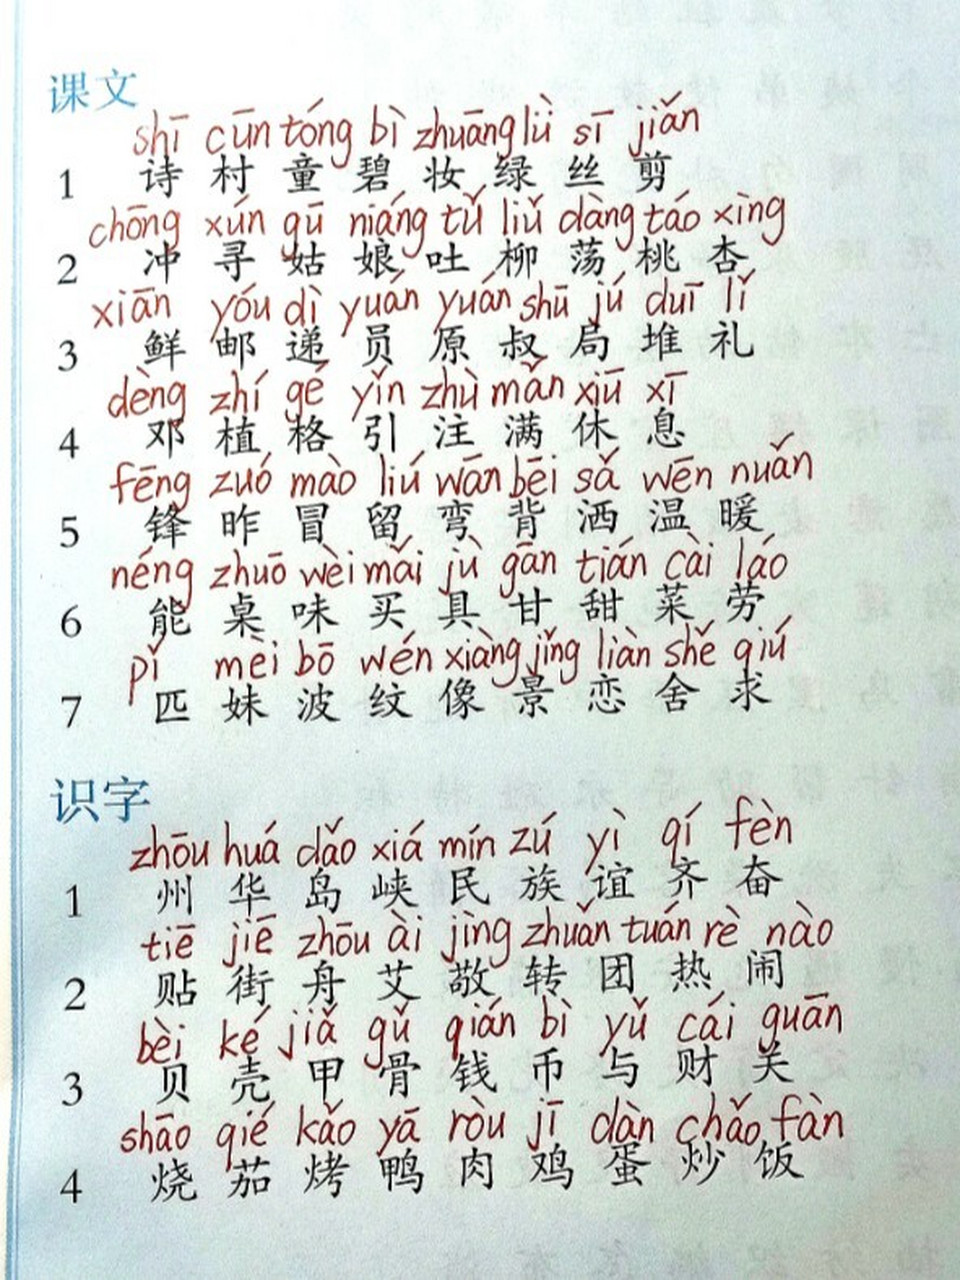 课文
shī cūn tóng bì zhuāng lǜ sī jiǎn
1 诗 村 童 碧 妆 绿 丝 剪
chōng xún gū niáng tǔ liǔ dàng táo xìng
2 冲 寻 姑 娘 吐 柳 荡 桃 杏
xiān yóu dì yuán yuán shū jú duī lǐ
3 鲜 邮 递 员 原 叔 局 堆 礼
dèng zhí gé yǐn zhù mǎn xiū xī
4 邓 植 格 引 注 满 休 息
fēng zuó mào liú wān bēi sǎ wēn nuǎn
5 锋 昨 冒 留 弯 背 洒 温 暖
néng zhuō wèi mǎi jù gān tián cài láo
6 能 桌 味 买 具 甘 甜 菜 劳
pǐ mèi bō wén xiàng jǐng liàn shě qiú
7 匹 妹 波 纹 像 景 恋 舍 求
识字
zhōu huá dǎo xiá mín zú yì qí fèn
1 州 华 岛 峡 民 族 谊 齐 奋
tiē jiē zhōu ài jìng zhuǎn tuán rè nào
2 贴 街 舟 艾 敬 转 团 热 闹
bèi ké jiǎ gǔ qián bì yǔ cái guān
3 贝 壳 甲 骨 钱 币 与 财 关
shāo qié kǎo yā ròu jī dàn chǎo fàn
4 烧 茄 烤 鸭 肉 鸡 蛋 炒 饭